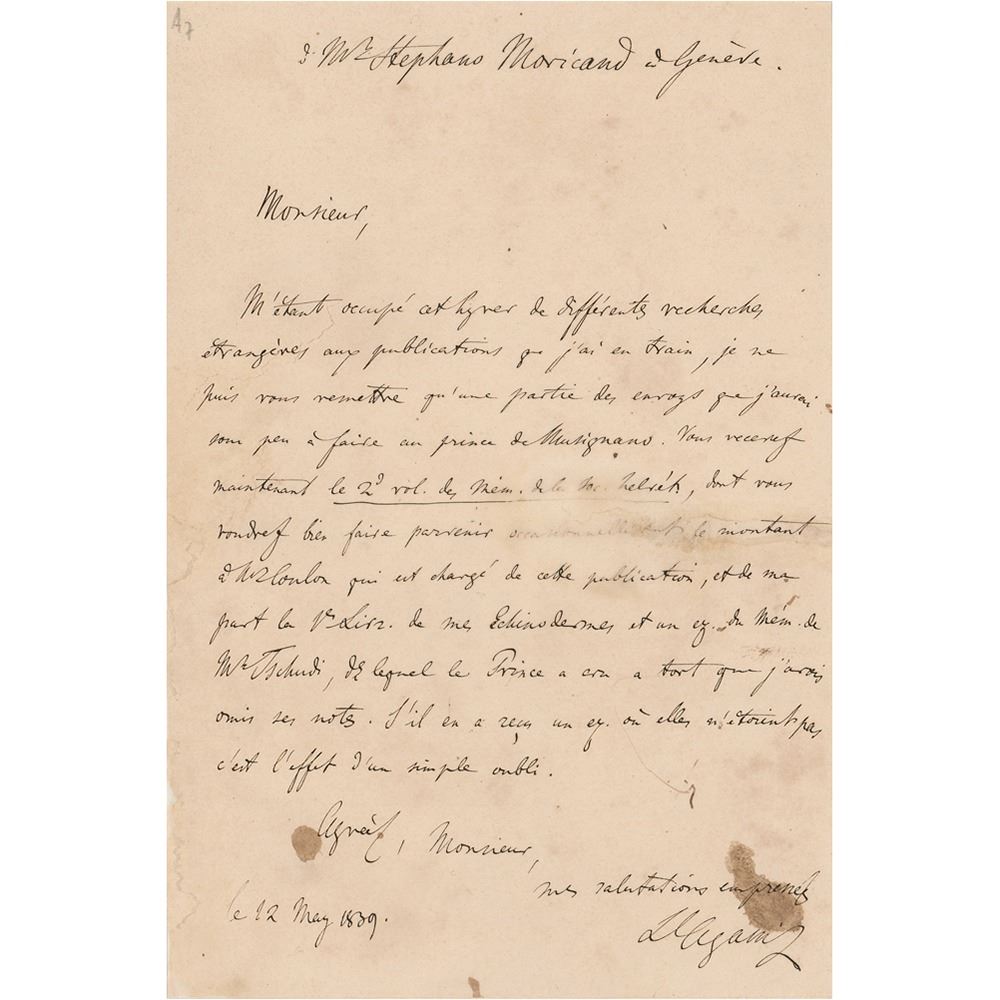 A7
à Mr. Stephano Moricand à Genève.
Monsieur,
M'étant occupé cet hyver de différentes recherches
étrangères aux publications que j'ai en train, je ne
puis vous remettre qu'une partie des envoys que j'aurai
sous peu à faire au prince de Musignano. Vous recevrez
maintenant le 2d vol. des Mém. de la Soc. helvét., dont vous
voudrez bien faire parvenir occasionnellement le montant
à Mr Coulon qui est chargé de cette publication, et de ma
part la 1re Livr. de mes Echinodermes et un ex. du Mém. de
Mr. Tschudi, de lequel le Prince a cru a tort que j'avois
omis ses notes. S'il en a reçu un ex. où elles n'étoient pas
c'est l'effet d'un simple oubli.
Agréez, Monsieur,
mes salutations empressées
le 12 May 1839.
Ls Agassiz